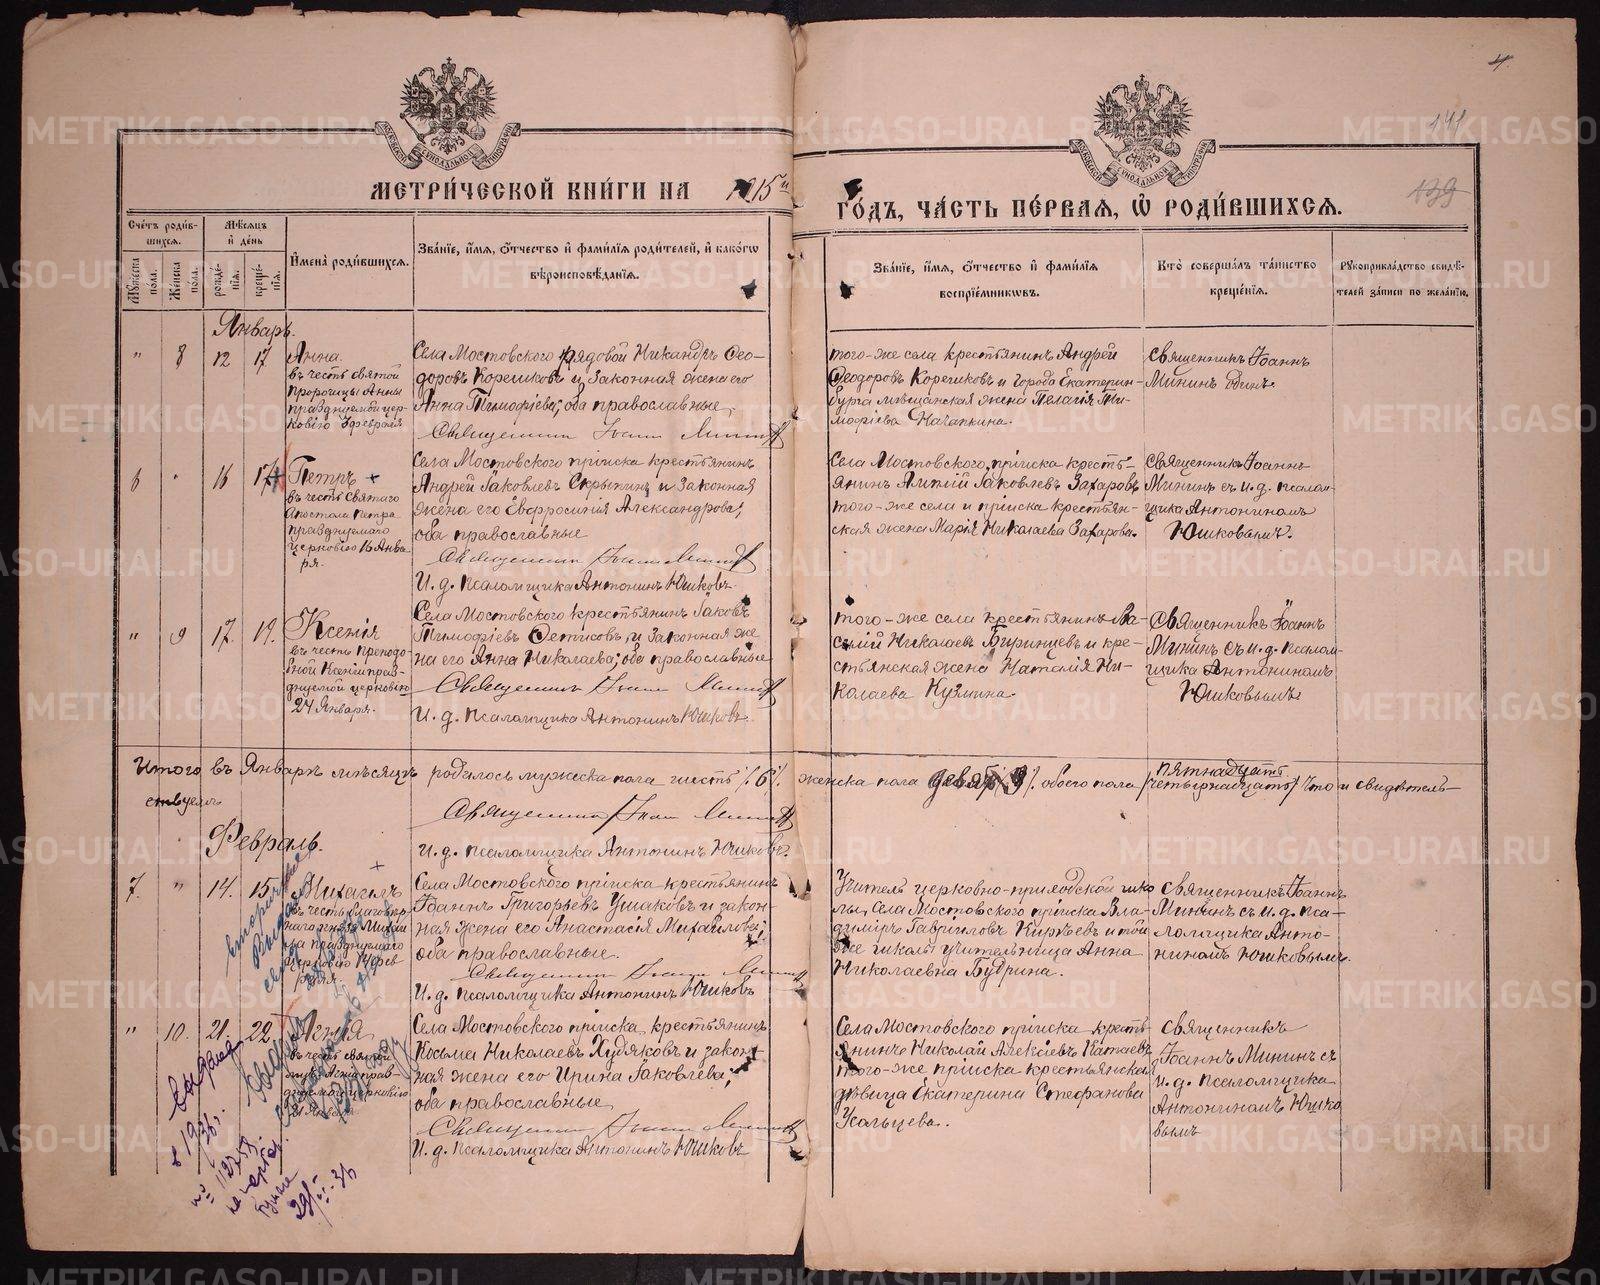 4.
141
139
МОСКОВСКОЙ СУНОДАЛЬНОЙ ТИПОГРАФІИ
МЕТРИ́ЧЕСКОЙ КНИ́ГИ НА 1915й
МОСКОВСКОЙ СУНОДАЛЬНОЙ ТИПОГРАФІИ
ГО́ДЪ, ЧА́СТЬ ПЕ́РВАЯ, Ѡ РОДИ́ВШИХСЯ.
Сче́тъ роди́вшихся.
Мужеска пола.
Женска пола.
Мѣ́сяцъ и де́нь
рожде́нія.
креще́нія.
И҆мена̀ роди́вшихся.
Зва́нїе, и҆́мя, ѻ҆́тчество и҆ фами́лїя роди́телей, и҆ како́гѡ
вѣроисповѣ́данїя.
Зва́нїе, и҆́мя, ѻ҆́тчество и҆ фами́лїя
воспрїе́мникѡвъ.
Кто̀ соверша́лъ та́инство
креще́нїя.
Рукоприкла́дство свидѣ́-
телей за́писи по жела́нїю.
Январь.
" 8 12 17
Анна.
въ честь святой
Пророчицы Анны
празднуемой цер-
ковію 3 февраля
Села Мостовского рядовой Никандръ Ѳео-
доровъ Корешковъ и законная жена его
Анна Тимофіева; оба православные.
Священникъ Іоаннъ Мининъ
того-же села крестьянинъ Андрей
Ѳеодоровъ Корешковъ и города Екатерин-
бурга мѣщанская жена Пелагія Ти-
мофіева Начапкина.
Священникъ Іоаннъ
Мининъ одинъ
6 " 16 17
Петръ +
въ честь Святаго
Апостола Петра
празднуемаго
церковію 16 Янва-
ря.
Села Мостовского пріиска крестьянинъ
Андрей Іаковлевъ Скрыпинъ и законная
жена его Евфросинія Александрова;
оба православные
Священникъ Іоаннъ Мининъ
И. д. псаломщика Антонинъ Юшковъ.
Села Мостовского, пріиска кресть-
янинъ Алексій Іаковлевъ Захаровъ
того-же села и пріиска крестьян-
ская жена Марія Николаева Захарова.
Священникъ Іоаннъ
Мининъ съ и. д. псалом-
щика Антониномъ
Юшковымъ.
" 9 17. 19.
Ксенія
въ честь преподо-
бной Ксеніи праз-
днуемой церковію
24 Января.
Села Мостовского крестьянинъ Іаковъ
Тимофіевъ Ѳетисовъ, и законная же
на его Анна Николаева; оба православные
Священникъ Іоаннъ Мининъ
И. д. псаломщика Антонинъ Юшковъ.
того-же села крестьянинъ Ва-
силій Николаевъ Биринцевъ и кре-
стьянская жена Наталія Ни-
колаева Кузмина.
Священникъ Іоаннъ
Мининъ съ и. д. псалом-
щика Антониномъ
Юшковымъ
Итого въ Январѣ мѣсяцѣ родилось мужеска пола шесть /6/. женска пола девять /9/. обоего пола /четырнадцать/ пятнадцать что и свидѣтель-
ствуемъ
Священникъ Іоаннъ Мининъ
И. д. псаломщика Антонинъ Юшковъ.
Февраль.
7. " 14. 15.
Михаилъ +
въ честь благовѣр-
наго князя Михаи
ла празднуемаго
церковію 14 фев
раля
Села Мостовского пріиска крестьянинъ
Іоаннъ Григорьевъ Ушаковъ и закон-
ная жена его Анастасія Михайлова;
оба православные.
Священникъ Іоаннъ Мининъ
И. д. псаломщика Антонинъ Юшковъ
Учитель церковно-приходской шко
лы, Села Мостовского пріиска Вла-
димиръ Гаврииловъ Кирѣевъ и той
же школы учительница Анна
Николаевна Будрина.
Священникъ Іоаннъ
Мининъ съ и. д. пса-
ломщика Анто-
ниномъ Юшковымъ.
" 10. 21. 22
Агнія
въ честь святой
мц. Агніи праз-
днуемой церковію
21 Января
Села Мостовского пріиска, крестьянинъ
Косьма Николаевъ Худяковъ и закон-
ная жена его Ирина Іаковлева;
оба православные
Священникъ Іоаннъ Мининъ
И. д. псаломщика Антонинъ Юшковъ
Села Мостовского пріиска кресть
янинъ Николай Алексіевъ Катаевъ
того-же пріиска крестьянская
дѣвица Екатерина Стефанова
Усольцева.
Священникъ
Іоаннъ Мининъ съ
и. д. псаломщика
Антониномъ Юшко
вымъ
в 1936 г.